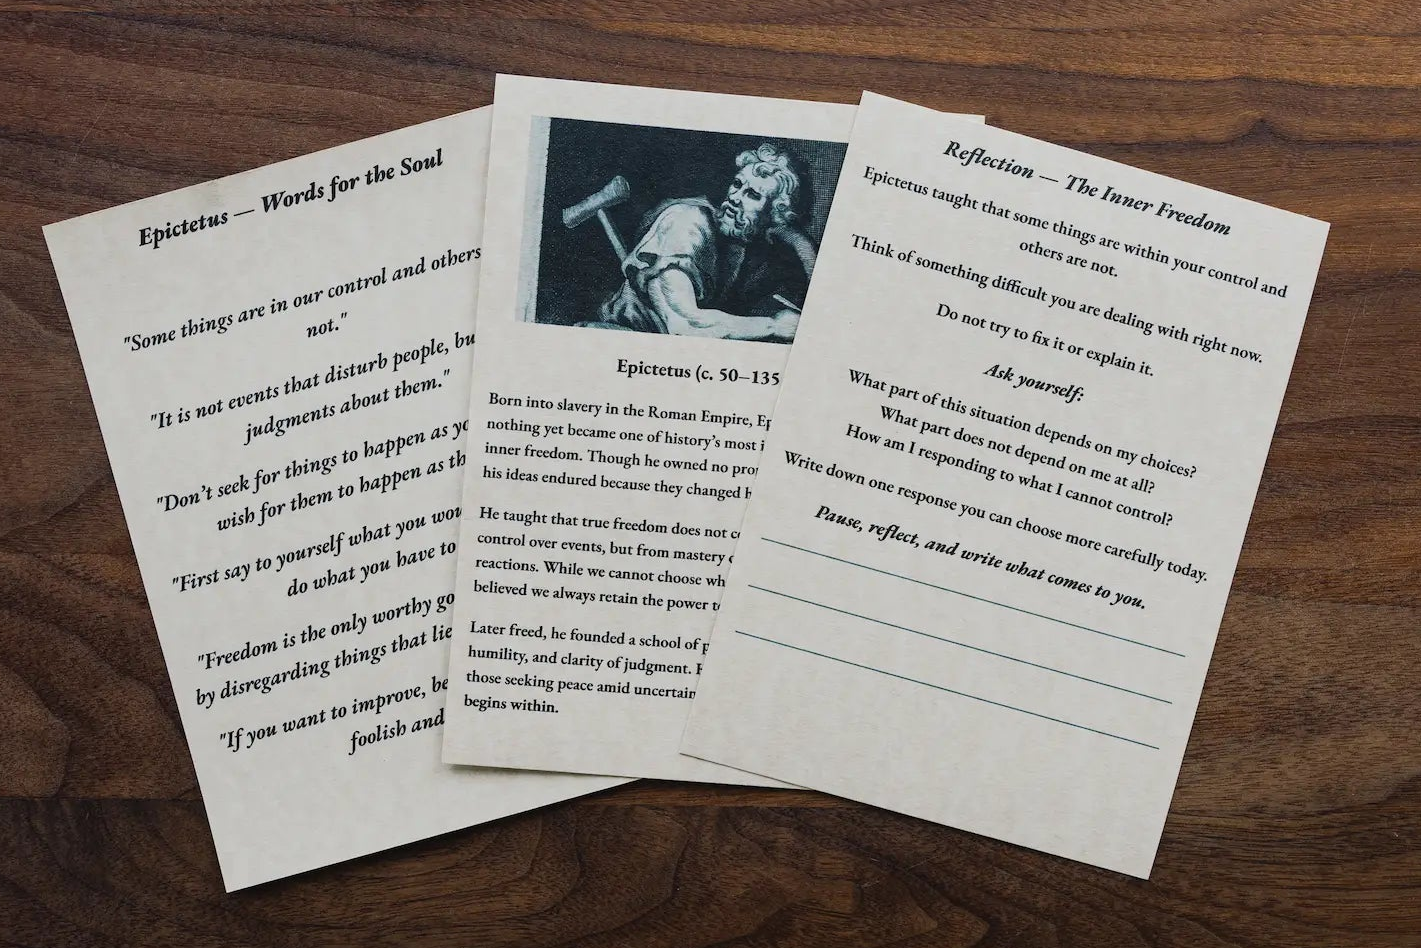 Epictetus — Words for the Soul
"Some things are in our control and others
not."
"It is not events that disturb people, but
judgments about them."
"Don't seek for things to happen as
wish for them to happen as
"First say to yourself what you
do what you have to
"Freedom is the only worthy
by disregarding things that lie
"If you want to improve, be
foolish and
Epictetus (c. 50–135
Born into slavery in the Roman Empire,
nothing yet became one of history's most
inner freedom. Though he owned no
his ideas endured because they changed
He taught that true freedom does not
control over events, but from mastery
reactions. While we cannot choose
believed we always retain the power
Later freed, he founded a school of
humility, and clarity of judgment.
those seeking peace amid
begins within.
Reflection — The Inner Freedom
Epictetus taught that some things are within your control and
others are not.
Think of something difficult you are dealing with right now.
Do not try to fix it or explain it.
Ask yourself:
What part of this situation depends on my choices?
What part does not depend on me at all?
How am I responding to what I cannot control?
Write down one response you can choose more carefully today.
Pause, reflect, and write what comes to you.